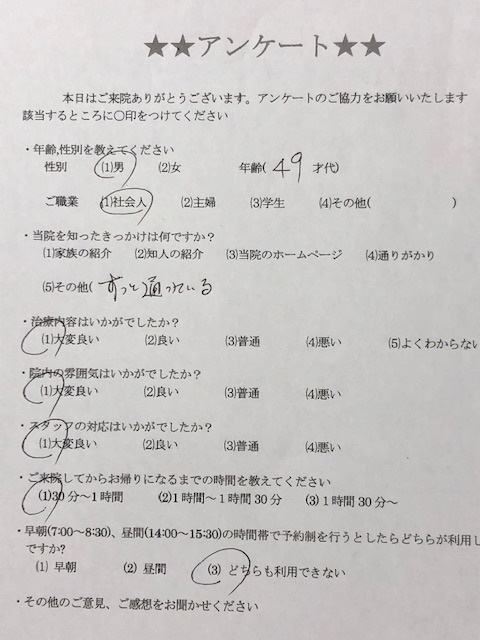 ★★アンケート★★
本日はご来院ありがとうございます。アンケートのご協力をお願いいたします
該当するところに〇印をつけてください
・年齢,性別を教えてください
性別 (1)男 (2)女 年齢( 49 才代)
ご職業 (1)社会人 (2)主婦 (3)学生 (4)その他( )
・当院を知ったきっかけは何ですか？
(1)家族の紹介 (2)知人の紹介 (3)当院のホームページ (4)通りがかり
(5)その他( ずっと通っている
・治療内容はいかがでしたか？
(1)大変良い (2)良い (3)普通 (4)悪い (5)よくわからない
・院内の雰囲気はいかがでしたか？
(1)大変良い (2)良い (3)普通 (4)悪い
・スタッフの対応はいかがでしたか？
(1)大変良い (2)良い (3)普通 (4)悪い
・ご来院してからお帰りになるまでの時間を教えてください
(1)30分～1時間 (2)1時間～1時間30分 (3)1時間30分～
・早朝(7:00～8:30)、昼間(14:00～15:30)の時間帯で予約制を行うとしたらどちらが利用し
ですか?
(1) 早朝 (2) 昼間 (3) どちらも利用できない
・その他のご意見、ご感想をお聞かせください